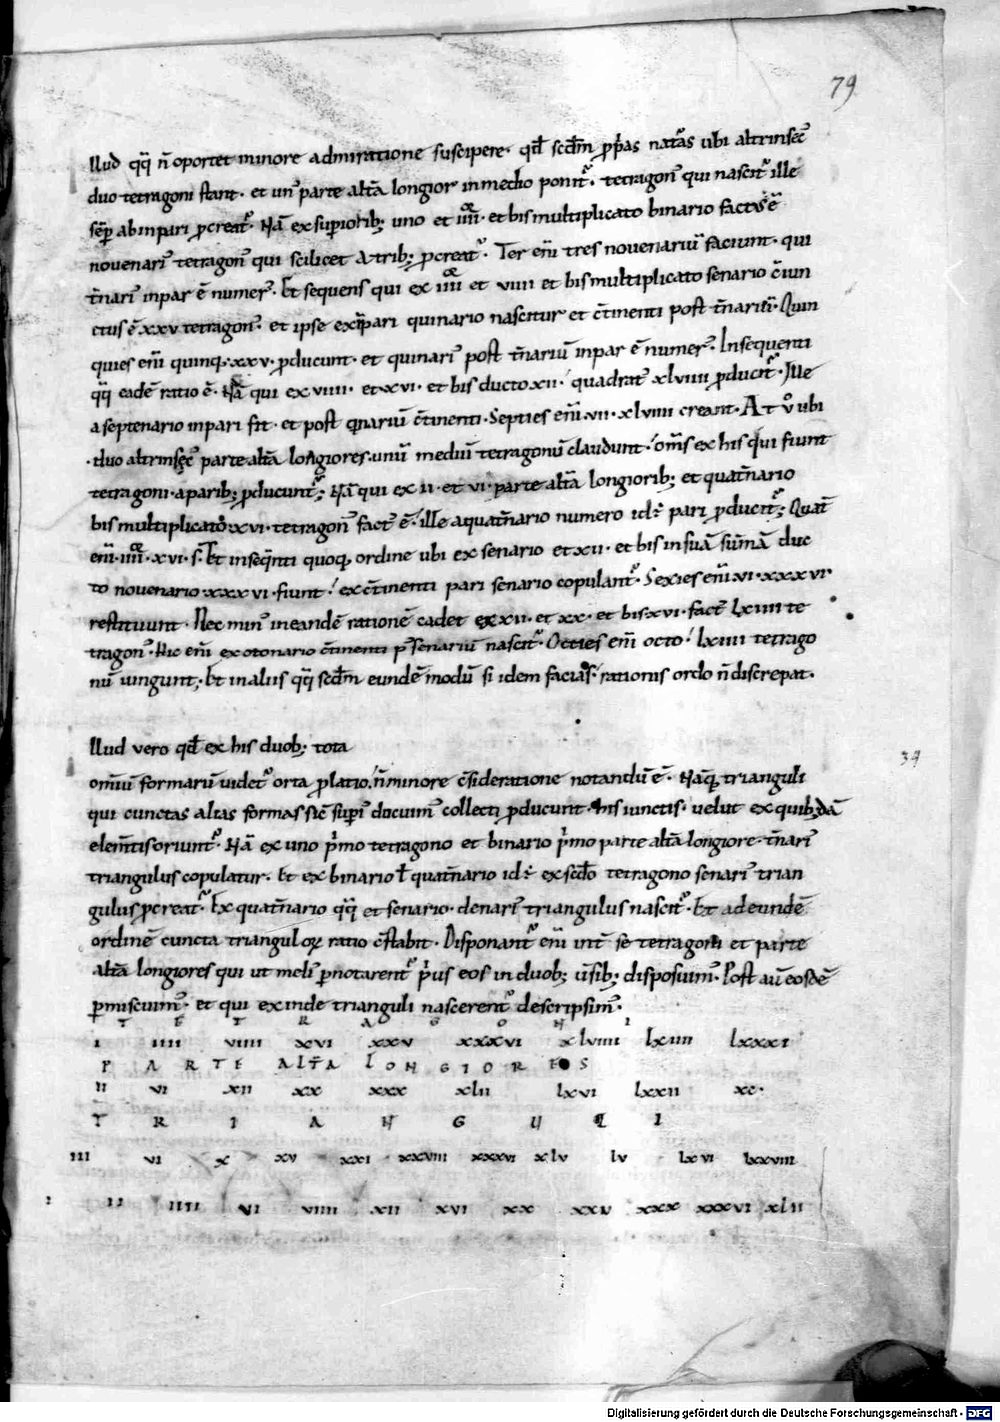 79
llud qq̄ n̄ oportet minore admiratione suscipere· qd̄ scdm̄ p̄p̄as nat̄as ubi altrinsec̄
duo tetragoni stant· et un᷒ parte altā longior in medio ponit᷑· tetragon᷒ qui nascit᷑ ille
sēp ab inpari p̄creat᷑· Nā ex superiorib; uno et iiii· et bis multiplicato binario factus ē
novenari᷒ tetragon᷒ qui scilicet a trib; p̄creat᷑· Ter eni᷒ tres novenariū faciunt· qui
t̄nari᷒ inpar ē numer᷒· Et sequens qui ex iiii et viiii et bis multiplicato senario c̄iun
ctus ē xxv tetragon᷒· et ipse ex īpari quinario nascitur et c̄tinenti post t̄nariū· Quin
quies enī quinq; xxv· p̄ducunt· et quinari᷒ post t̄nariū inpar ē numer᷒· In sequenti
qq̄ eadē ratio ē· Nā qui ex viiii· et xvi· et bis ducto xii· quadrat᷒ xlviiii p̄ducit᷑· Ille
a septenario inpari fit· et post qnariū c̄tinenti· Septies enī vii· xlviiii creant· At v̊ ubi
·duo altrinsec᷒ parte altā longiores· unū mediū tetragonū claudunt· om̄s ex his qui fiunt
tetragoni· a parib; p̄ducunt᷑; Nā qui ex ii· et vi· parte altā longiorib; et quat̄nario
bis multiplicato· xvi· tetragon᷒ fact᷒ ē· ille a quat̄nario numero id ē pari p̄ducit᷑; Quat̄
enī· iiii· xvi· s̄· Et in seq̄nti quoq; ordine ubi ex senario et xii· et bis in suā sum̄ā duc
to novenario· xxxvi· fiunt· ex c̄tinenti pari senario copulant᷑· Sexies enī· vi· xxxvi·
restituunt· Nec min᷒ in eandē rationē cadet ex xii· et xx· et bis xvi· fact᷒ lxiiii te
tragon᷒· Hic enī ex otonario c̄tinenti p᷒ senariū nascit᷑· Octies enī octo· lxiiii tetrago
nū iungunt; Et in aliis qq̄ scdm̄ eundē modū si idem facias· rationis ordo n̄ discrepat·
llud vero qd̄ ex his duob; tota
34
om̄iū formarū videt᷑ orta p̄latio· n̄ minore c̄sideratione notandū ē· Nāq; trianguli
qui cunctas alias formas sic̄ superi᷒ docuim᷒ collecti p̄ducunt· his iunctis· velut ex quib;dā
elem̄tis oriunt᷑· Nā ex uno p̄mo tetragono et binario p̄mo parte altā longiore· t̄nari᷒
triangulus copulatur· Et ex binario ł quat̄nario id ē ex scdo tetragono senari᷒ trian
gulus p̄creat᷑· Ex quat̄nario qq̄ et senario· denari᷒ triangulus nascit᷑· Et ad eundē
ordinē cuncta triangulorꝝ ratio c̄stabit· Disponant᷑ enī int̄ se tetragoni et parte
altā longiores qui ut meli᷒ p̄notarent᷑ p̄us eos in duob; v̄sib; disposuim᷒· Post aū eosdē
p̄miscuim᷒· et qui exinde trianguli nascerent᷑ descripsim᷒·
T E T R A G O N I
I IIII VIIII XVI XXV XXXVI XLVIIII LXIIII LXXXI
P A R T E ALT̄A LONGIORES
II VI XII XX XXX XLII LXVI LXXII XC·
T R I A N G U L I
III VI X XV XXI XXVIII XXXVI XLV LV LXVI LXXVIII
I II IIII VI VIIII XII XVI XX XXV XXX XXXVI XLII
Digitalisierung gefördert durch die Deutsche Forschungsgemeinschaft - DFG